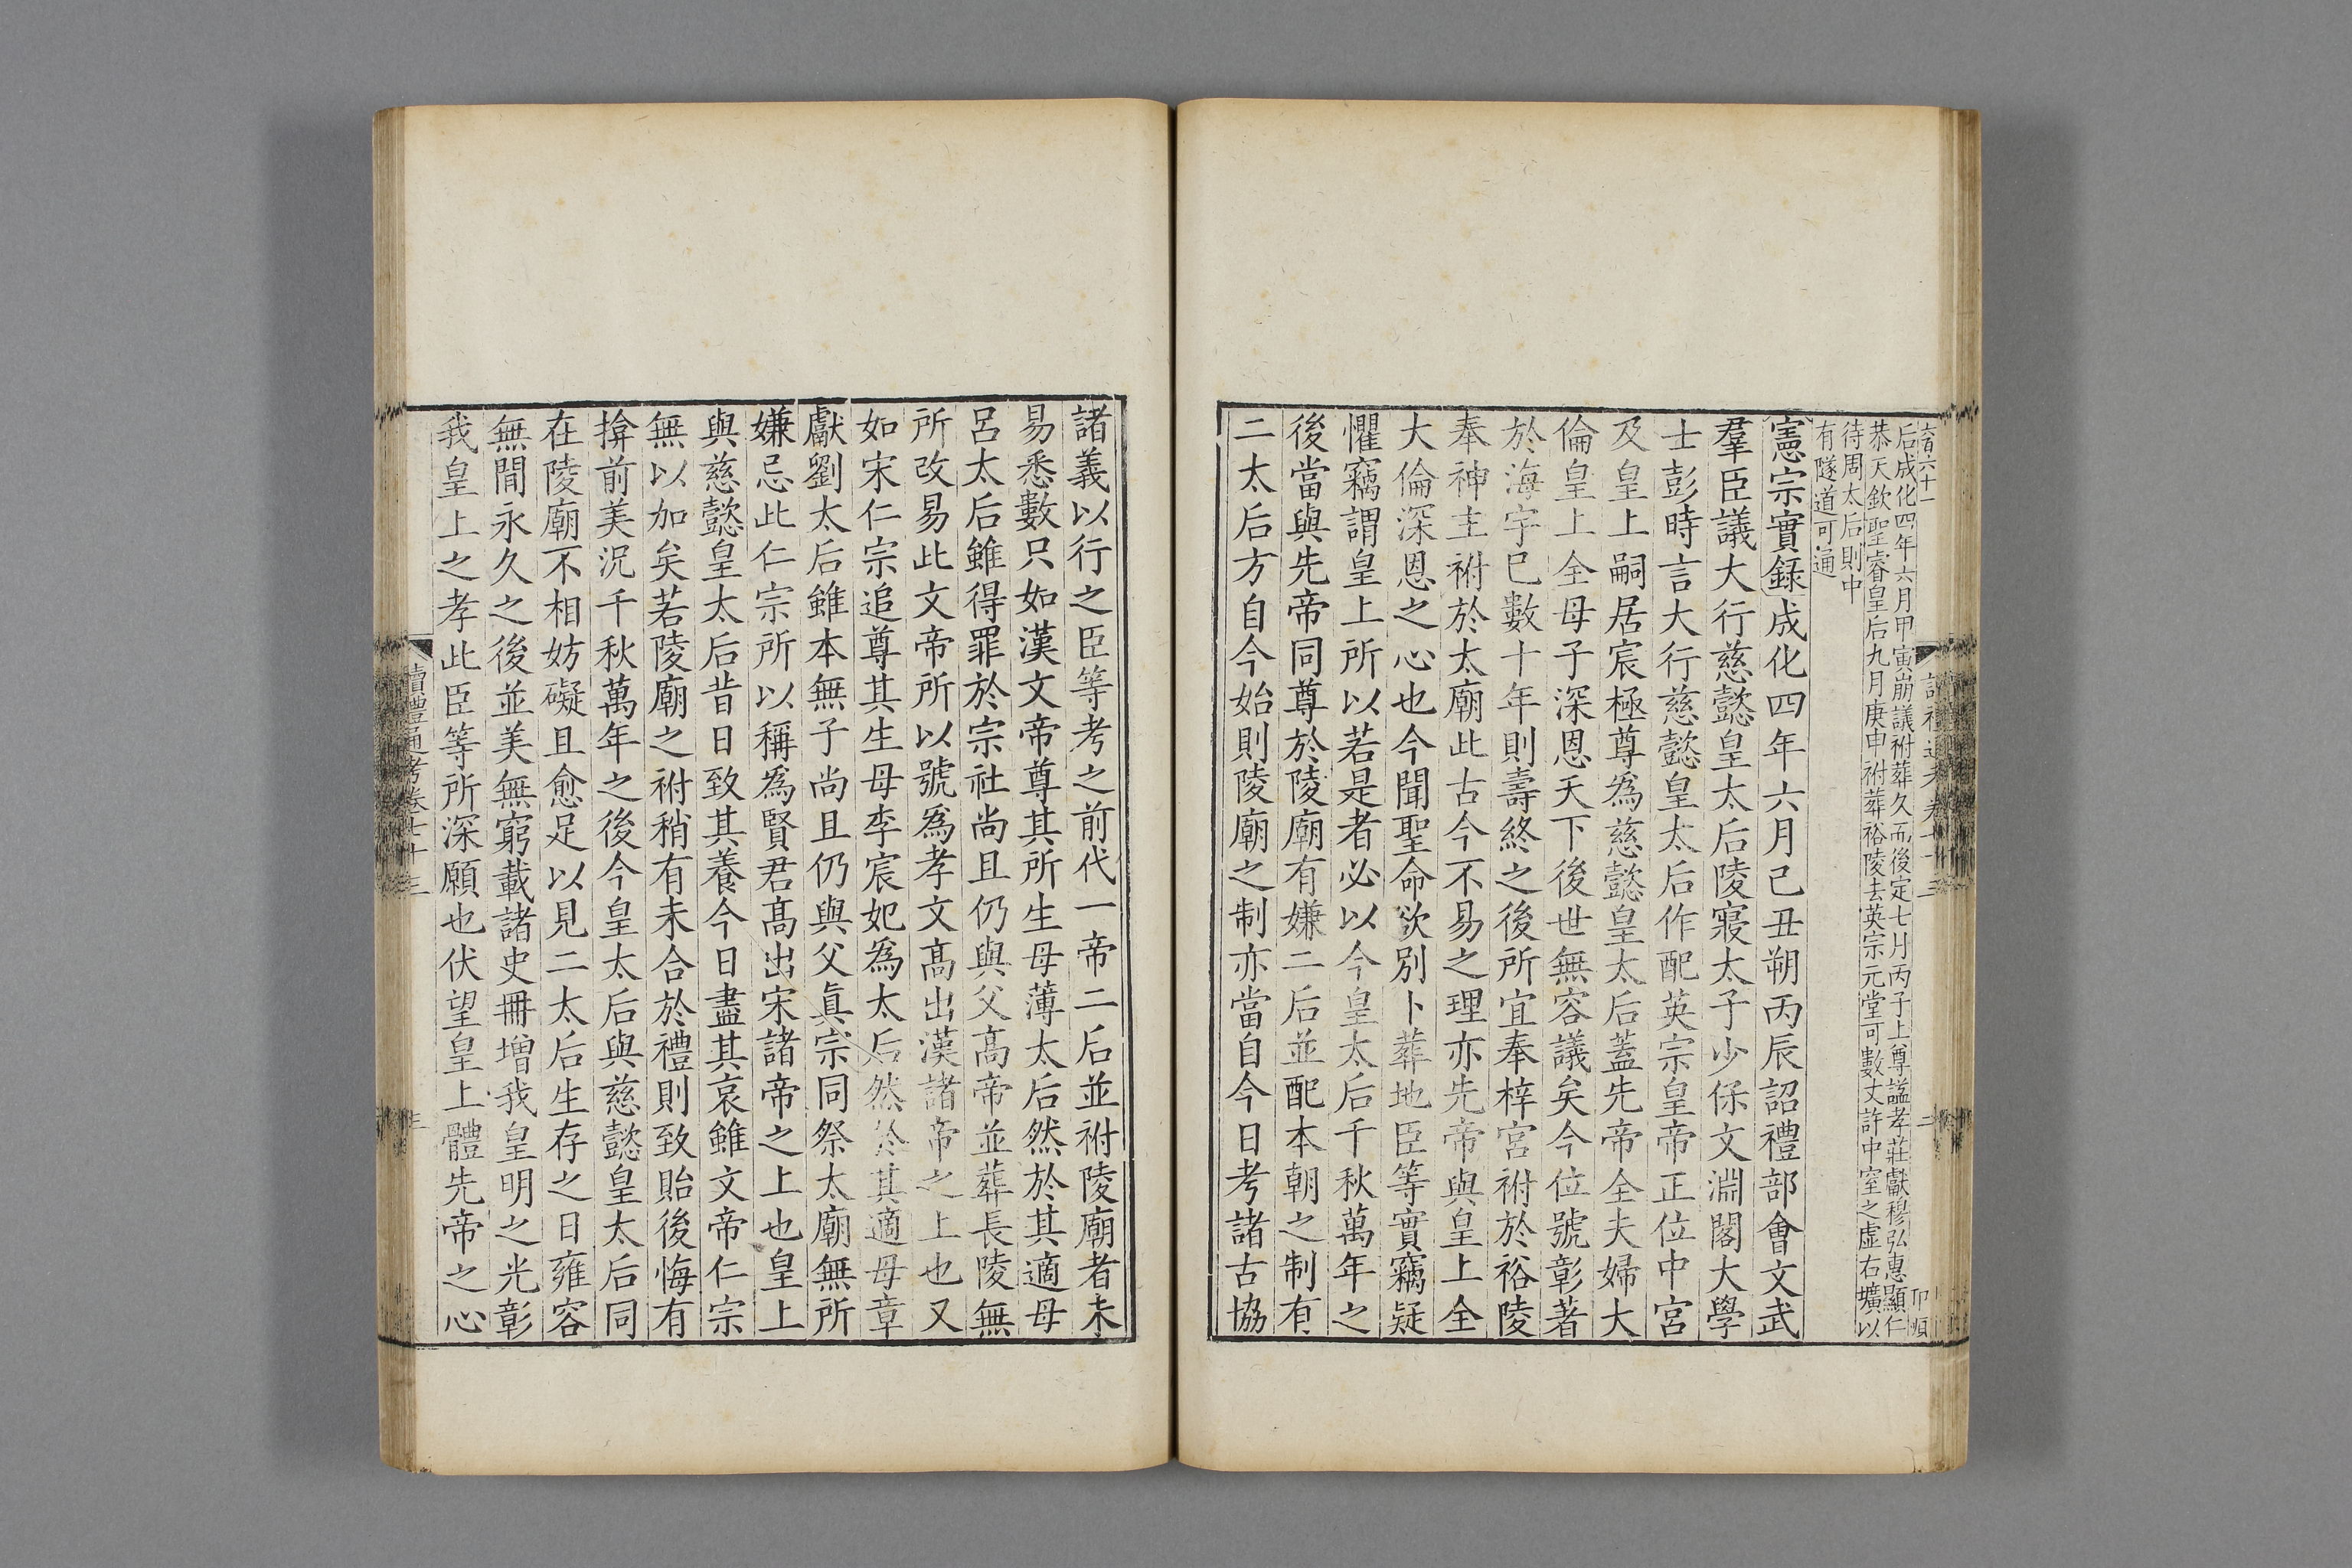 后成化四年六月甲寅崩議祔葬久而後定七月丙子上尊謚孝莊獻穆弘惠顯仁
恭天欽聖睿皇后九月庚申祔葬裕陵去英宗元堂可數丈許中窒之虛右壙以
待周太后則中
有隧道可通
憲宗實錄成化四年六月己丑朔丙辰詔禮部會文武
羣臣議大行慈懿皇太后陵寢太子少保文淵閣大學
士彭時言大行慈懿皇太后作配英宗皇帝正位中宮
及皇上嗣居宸極尊為慈懿皇太后蓋先帝全夫婦大
倫皇上全母子深恩天下後世無容議矣今位號彰著
於海宇已數十年則壽終之後所宜奉梓宮祔於裕陵
奉神主祔於太廟此古今不易之理亦先帝與皇上全
大倫深恩之心也今聞聖命欲別卜葬地臣等實竊疑
懼竊謂皇上所以若是者必以今皇太后千秋萬年之
後當與先帝同尊於陵廟有嫌二后並配本朝之制有
二太后方自今始則陵廟之制亦當自今日考諸古協
諸義以行之臣等考之前代一帝二后並祔陵廟者未
易悉數只如漢文帝尊其所生母薄太后然於其適母
呂太后雖得罪於宗社尚且仍與父高帝並葬長陵無
所改易此文帝所以號為孝文高出漢諸帝之上也又
如宋仁宗追尊其生母李宸妃為太后然於其適母章
獻劉太后雖本無子尚且仍與父真宗同祭太廟無所
嫌忌此仁宗所以稱為賢君高出宋諸帝之上也皇上
與慈懿皇太后昔日致其養今日盡其哀雖文帝仁宗
無以加矣若陵廟之祔稍有未合於禮則致貽後悔有
揜前美況千秋萬年之後今皇太后與慈懿皇太后同
在陵廟不相妨礙且愈足以見二太后生存之日雍容
無間永久之後並美無窮載諸史冊增我皇明之光彰
我皇上之孝此臣等所深願也伏望皇上體先帝之心
讀禮通考卷七十三